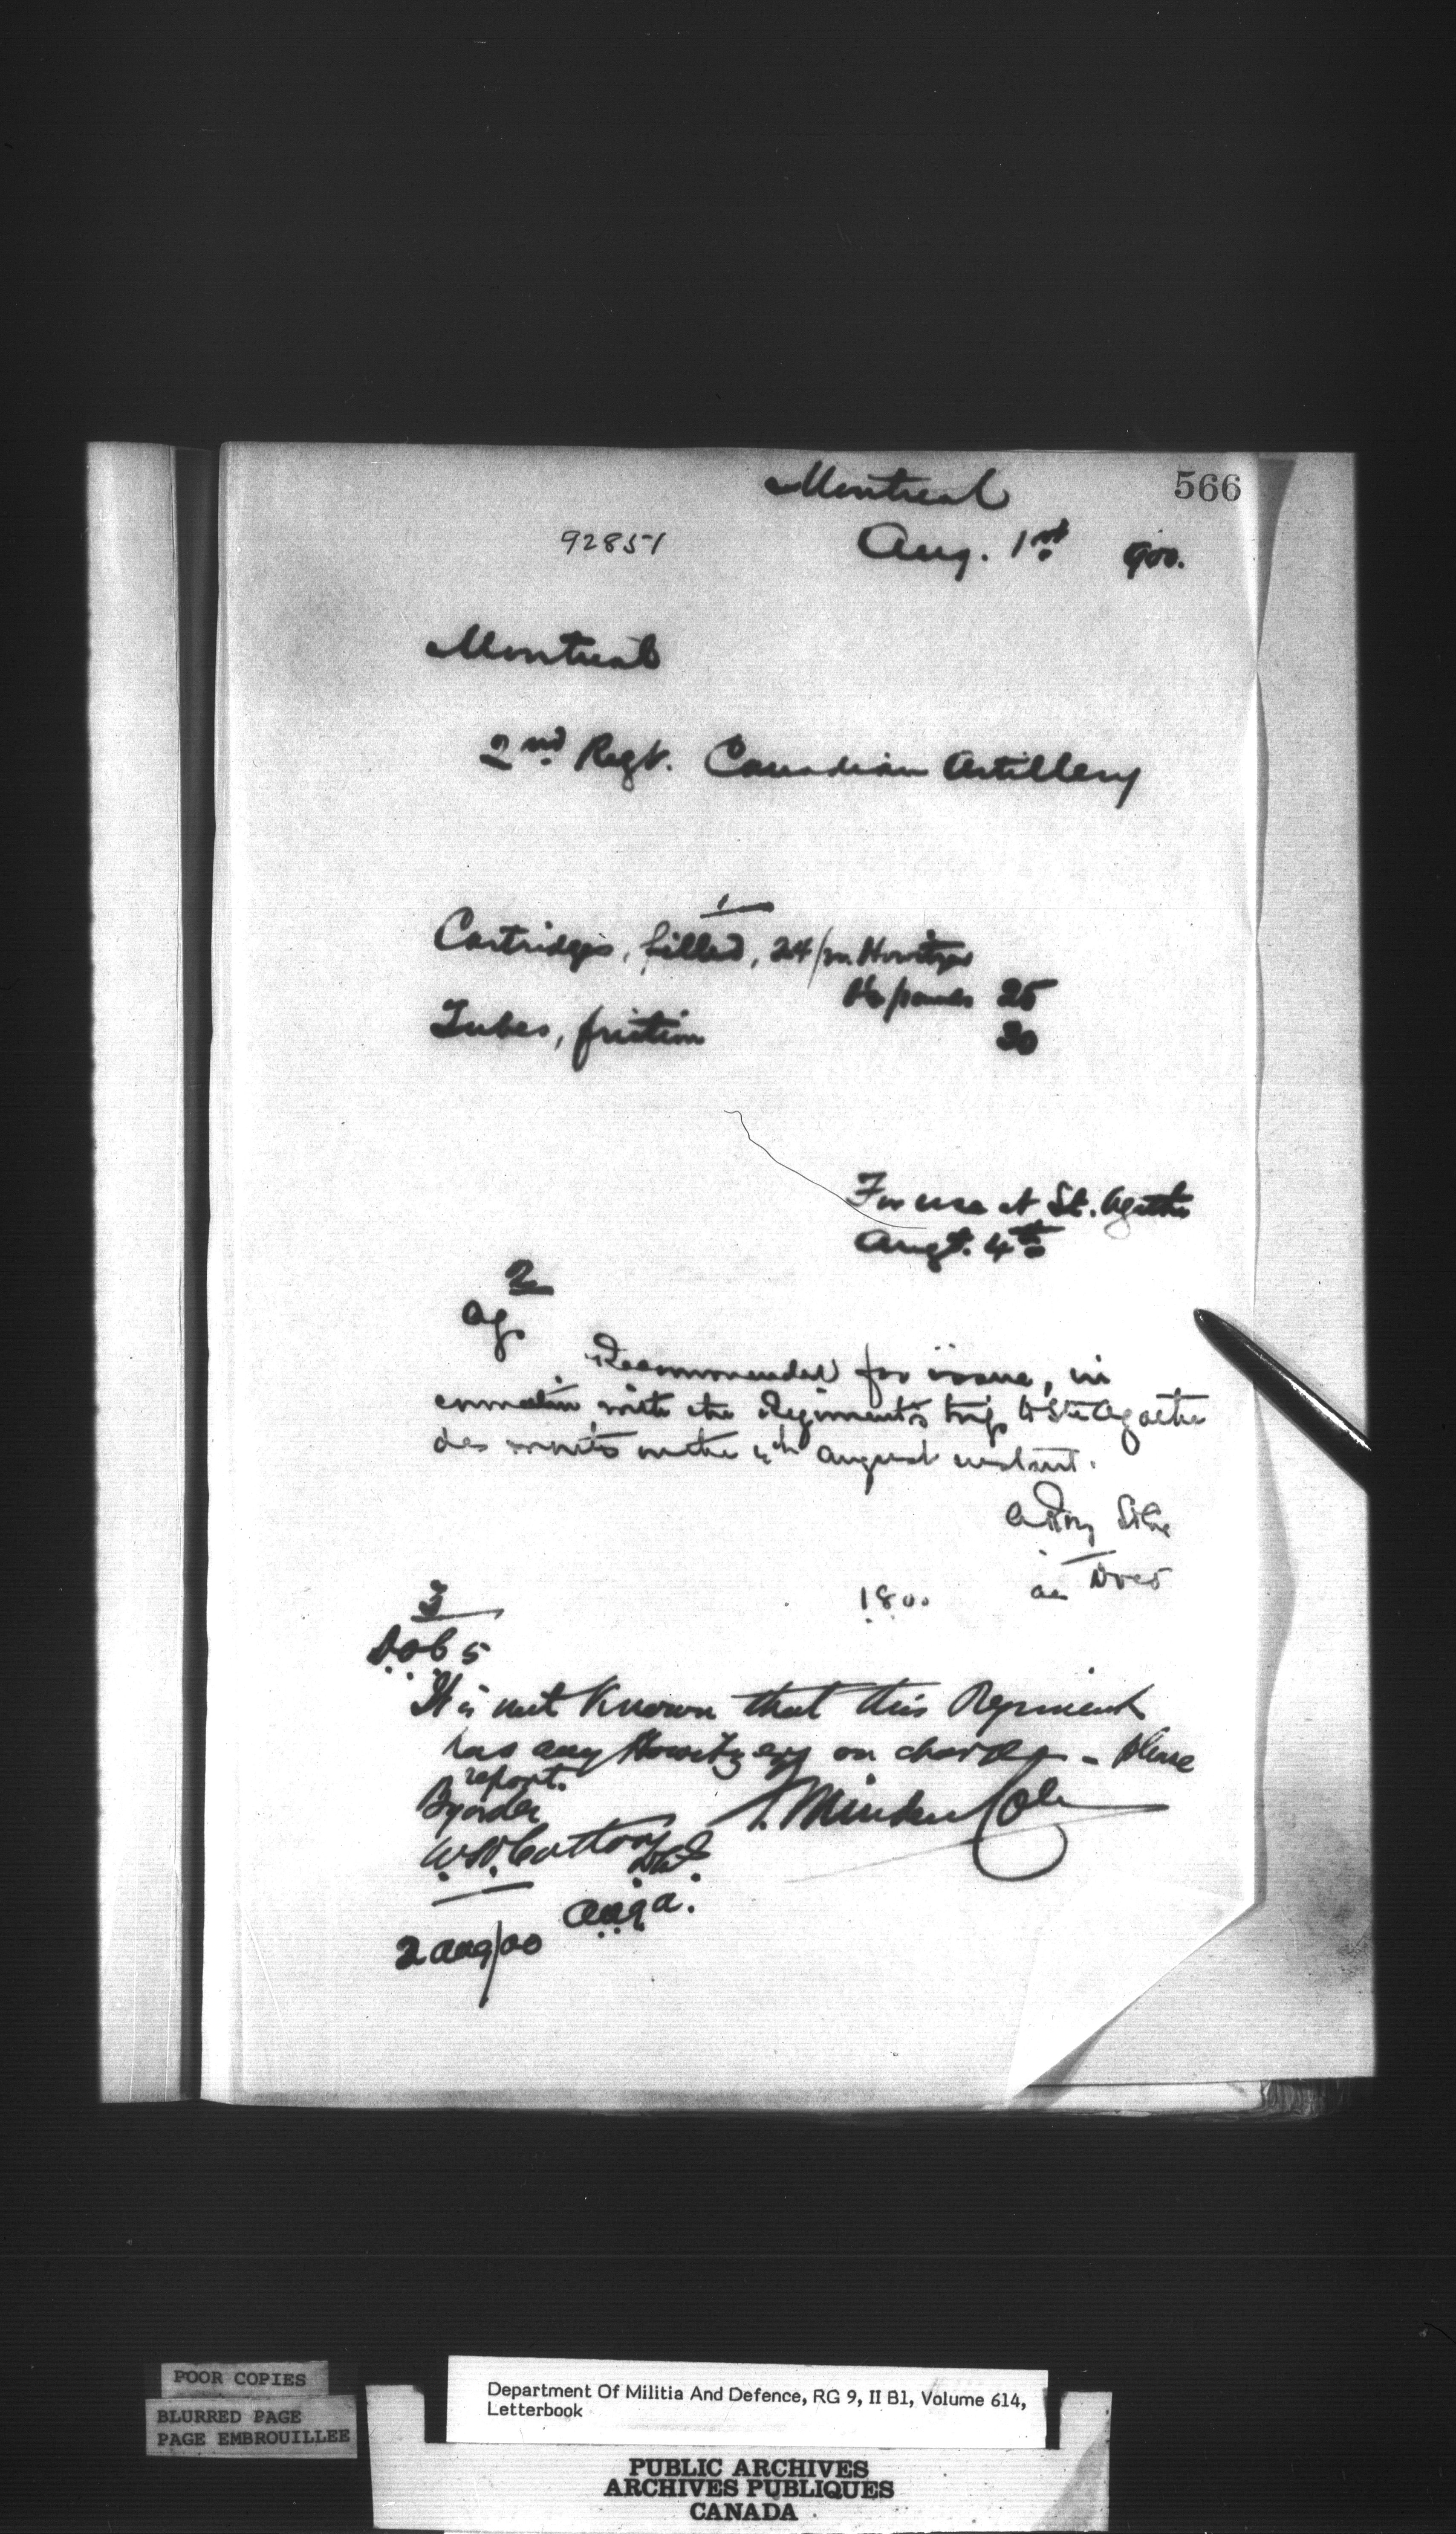 566
Montreal
92851 Aug. 1st 900.
Montreal
2nd Regt. Canadian Artillery
1
Cartridges, filled, 24/pr. Howitzer
25
Tubes, friction 30
For use at St. Agathe
Augt. 4th
2
Recommended for issue, in
connection with the Regiment's trip to Ste Agathe
des monts on the 4th August instant.
1 8 00
3
D.O.C 5
It is not known that this Regiment
has any Howitzers on charge - Please
report.
By order
W.H. Cotton
A.A.G.A.
2 Aug/00
POOR COPIES
BLURRED PAGE
PAGE EMBROUILLEE
Department Of Militia And Defence, RG 9, II B1, Volume 614,
Letterbook
PUBLIC ARCHIVES
ARCHIVES PUBLIQUES
CANADA